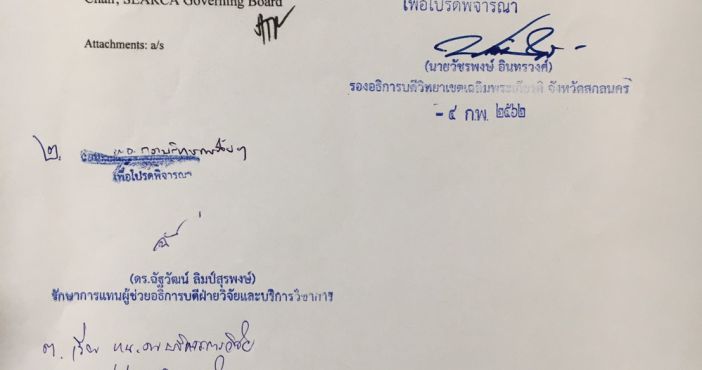 Chair, SEARCA Governing Board
Attachments: a/s
เพื่อโปรดพิจารณา
(นายวัชรพงษ์ อินทรวงศ์)
รองอธิการบดีวิทยาเขตเฉลิมพระเกียรติ จังหวัดสกลนคร
- ๔ ก.พ. ๒๕๖๒
๒.
เพื่อโปรดพิจารณา
(ดร.ฉัฐวัฒน์ ลิมป์สุรพงษ์)
รักษาการแทนผู้ช่วยอธิการบดีฝ่ายวิจัยและบริการวิชาการ
๓. เรียน